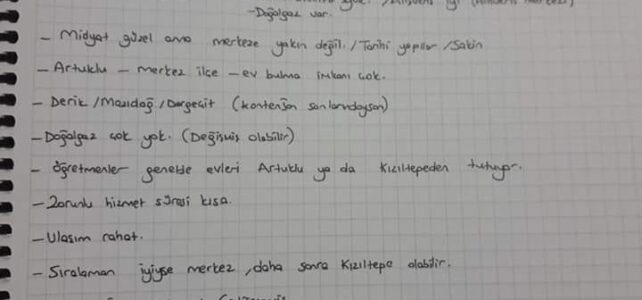 -Doğalgaz var.
- Midyat güzel ama merkeze yakın değil. /Tarihi yapılar /Sakin
- Artuklu - merkez ilçe - ev bulma imkanı çok.
- Derik /Mazıdağ /Dargeçit (kontenjan sonlarındaysan)
-Doğalgaz çok yok. (Değişmiş olabilir)
- Öğretmenler genelde evleri Artuklu ya da Kızıltepeden tutuyor.
-Zorunlu hizmet süresi kısa.
-Ulaşım rahat.
- Sıralaman iyiyse merkez, daha sonra Kızıltepe olabilir.